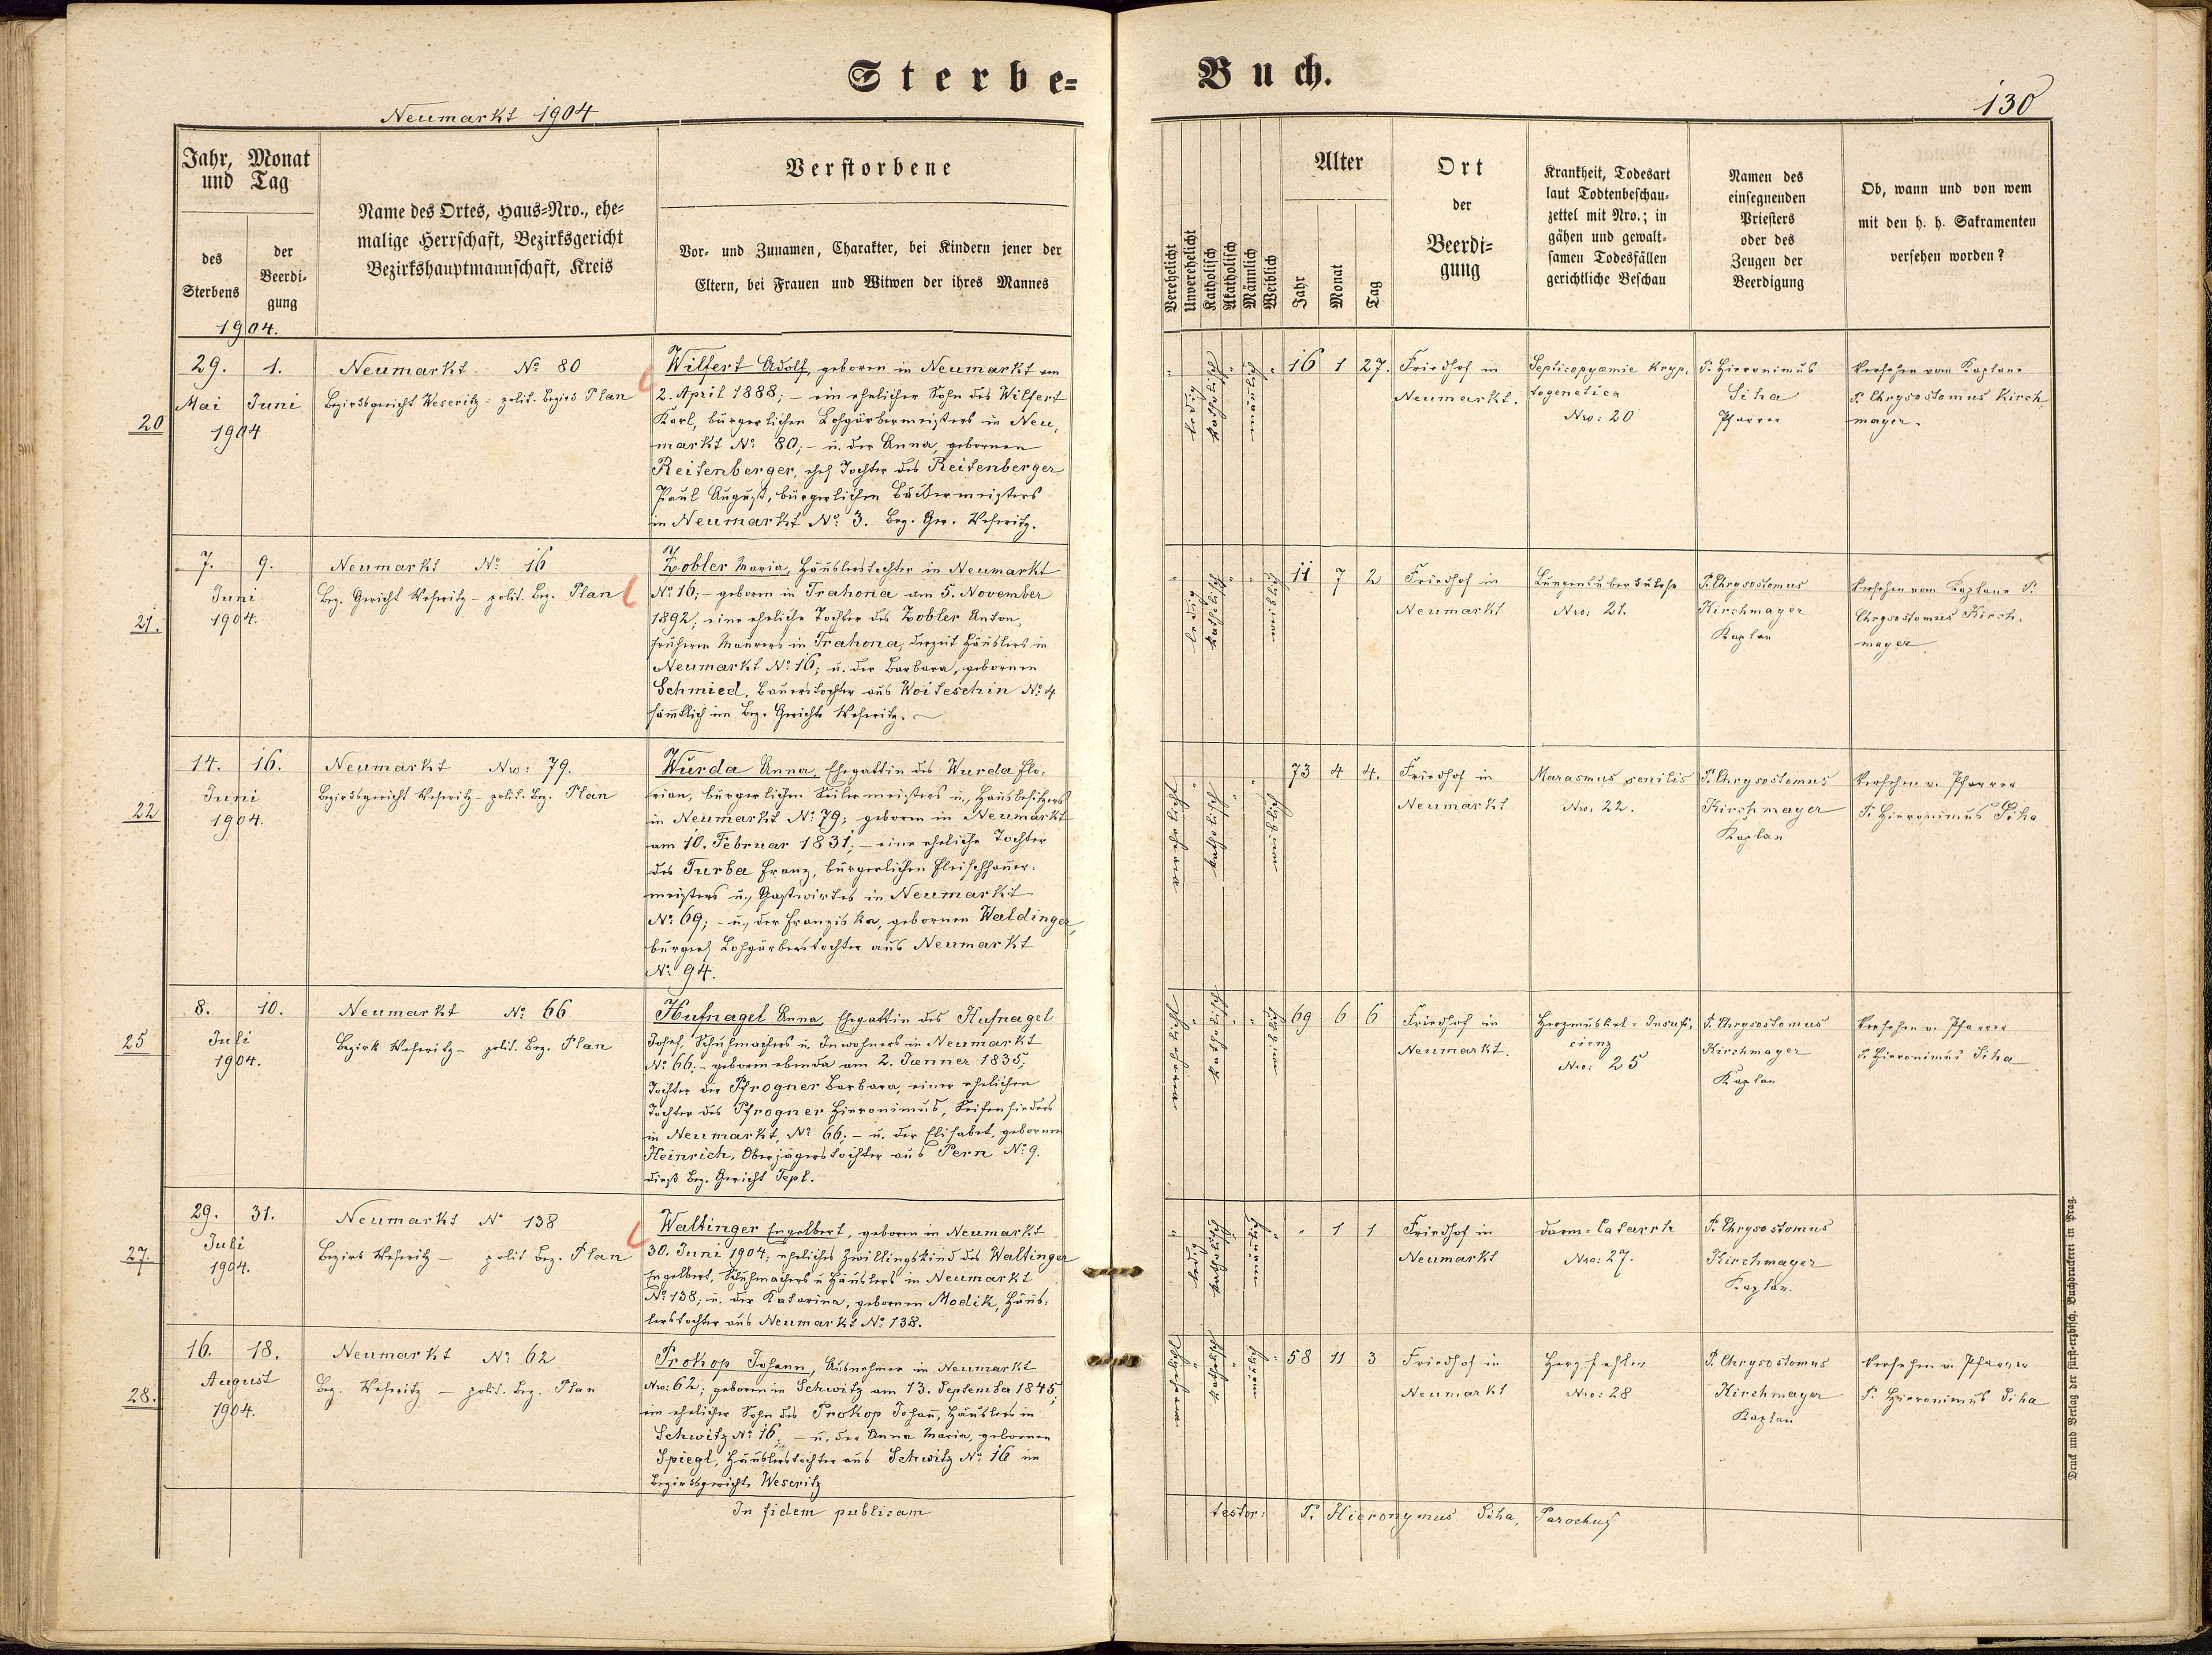 Sterbe-
Buch.
Neumarkt 1904
130
Jahr, Monat
und Tag
des
Sterbens
der
Beerdi-
gung
Name des Ortes, Haus-Nro., ehe-
malige Herrschaft, Bezirksgericht
Bezirkshauptmannschaft, Kreis
Verstorbene
Vor- und Zunamen, Charakter, bei Kindern jener der
Eltern, bei Frauen und Witwen der ihres Mannes
Verehelicht
Unverehelicht
Katholisch
Akatholisch
Männlich
Weiblich
Alter
Jahr
Monat
Tag
Ort
der
Beerdi-
gung
Krankheit, Todesart
laut Todtenbeschau-
zettel mit Nro.; in
gähen und gewalt-
samen Todesfällen
gerichtliche Beschau
Namen des
einsegnenden
Priesters
oder des
Zeugen der
Beerdigung
Ob, wann und von wem
mit den h. h. Sakramenten
versehen worden?
1904.
20
29. 1.
Mai Juni
1904
Neumarkt No 80
Bezirksgericht Weseritz - polit. Bezirk Plan
Wilfert Adolf, geboren in Neumarkt am
2. April 1888; - ein ehelicher Sohn des Wilfert
Karl, bürgerlichen Lohgärbermeisters in Neu-
markt No 80; - u. der Anna, gebornen
Reitenberger, ehel Tochter des Reitenberger
Paul August, bürgerlichen Bäckermeisters
in Neumarkt No 3. Bez. Ger. Weseritz.
ledig
katholisch
16 1 27.
Friedhof in
Neumarkt.
Septicopyæmie kryp-
togenetica
Nro: 20
P. Hieronimus
Siha
Pfarrer
Versehen vom Kaplane
P. Chrysostomus Kirch
mayer.
21.
7. 9.
Juni
1904.
Neumarkt No 16
Bez. Gericht Weseritz - polit. Bez. Plan
Zobler Maria, Häuslerstochter in Neumarkt
No 16; - geboren in Trahona am 5. November
1892; eine eheliche Tochter des Zobler Anton,
früheren Maurers in Trahona, derzeit Häuslers in
Neumarkt No 16; u. der Barbara, gebornen
Schmied, Bauerstochter aus Woiteschin No 4
sämtlich im Bez. Gerichte Weseritz. -
ledig
katholisch
11 7 2
Friedhof in
Neumarkt
Lungentuberkulose
Nro: 21.
P. Chrysostomus
Kirchmayer
Kaplan
Versehen vom Kaplane P.
Chrysostomus Kirch-
mayer
22
14. 16.
Juni
1904.
Neumarkt Nro: 79.
Bezirksgericht Weseritz - polit. Bez. Plan
Wurda Anna, Ehegattin des Wurda Flo-
rian, bürgerlichen Seilermeisters u, Hausbesitzers
in Neumarkt No 79; geboren in Neumarkt
am 10. Februar 1831; - eine eheliche Tochter
des Turba Franz, bürgerlichen Fleischhauer-
meisters u, Gastwirtes in Neumarkt
No 69; - u, der Franziska, gebornen Waldinger,
bürgerl Lohgärberstochter aus Neumarkt
No 94.
katholisch
73 4 4.
Friedhof in
Neumarkt
Marasmus senilis
Nro. 22.
P. Chrysostomus
Kirchmayer
Kaplan
Versehen v. Pfarrer
P. Hieronimus Siha
25
8. 10.
Juli
1904.
Neumarkt No 66
Bezirk Weseritz - polit. Bez. Plan
Hufnagel Anna, Ehegattin des Hufnagel
Josef, Schuhmachers u. Inwohners in Neumarkt
No 66; - geboren ebenda am 2. Jænner 1835;
Tochter der Pfrogner Barbara, einer ehelichen
Tochter des Pfrogner Hieronimus, Seifensieders
in Neumarkt, No 66; - u. der Elisabet, gebornen
Heinrich, Oberjägerstochter aus Pern No 9.
dieß Bez. Gericht Tepl.
katholisch
69 6 6
Friedhof in
Neumarkt.
Herzmuskel-Insufi-
cienz
Nro: 25
P. Chrysostomus
Kirchmayer
Kaplan
Versehen v. Pfarrer
P. Hieronimus Siha
27.
29. 31.
Juli
1904.
Neumarkt No 138
Bezirk Weseritz - polit Bez. Plan
Waltinger Engelbert, geboren in Neumarkt
30. Juni 1904; eheliches Zwillingskind des Waltinger
Engelbert, Schuhmachers u Häuslers in Neumarkt
No 138; u. der Katarina, gebornen Modik, Häus-
lerstochter aus Neumarkt No 138.
ledig
katholisch
" 1 1
Friedhof in
Neumarkt
Darm-Catarrh
Nro: 27.
P. Chrysostomus
Kirchmayer
Kaplan.
28.
16. 18.
August
1904.
Neumarkt No 62
Bez. Weseritz - polit. Bez. Plan
Prokop Johann, Ausnehmer in Neumarkt
Nro: 62; geboren in Schwitz am 13. September 1845;
ein ehelicher Sohn des Prokop Johann, Häuslers in
Schwitz No 16; - u. der Anna Maria, gebornen
Spiegl, Häuslerstochter aus Schwitz No 16 im
Bezirksgericht, Weseritz
katholisch
58 11 3
Friedhof in
Neumarkt
Herzfehler
Nro: 28
P. Chrysostomus
Kirchmayer
Kaplan
Versehen v. Pfarrer
P. Hieronimus Siha
In fidem publicam
testor: P. Hieronymus Siha, Parochus
Druck und Verlag der fürst-erzbisch. Buchdruckerei in Prag.